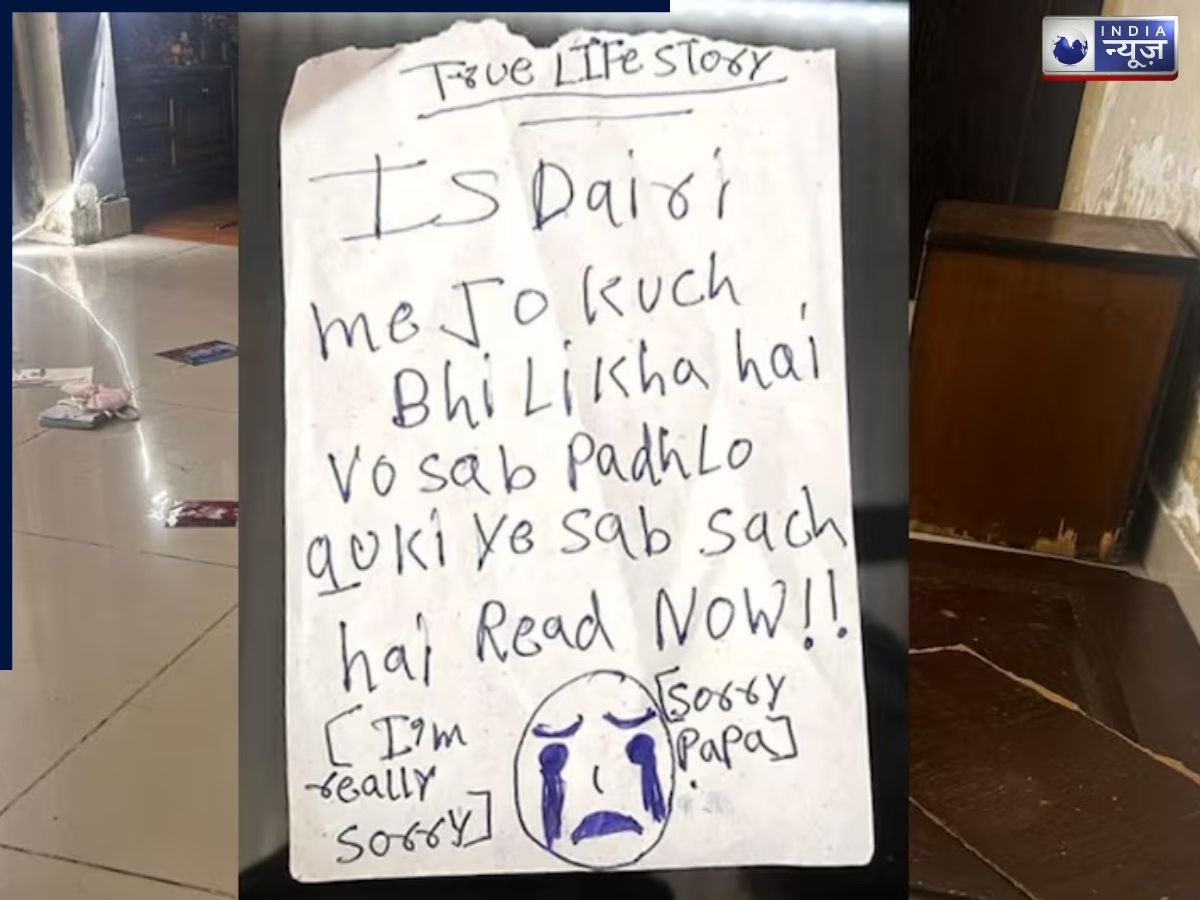 INDIA
न्यूज़
True LIFe Story
Is Dairi
me Jo kuch
Bhi Likha hai
Vo sab PadhLo
quki Ye sab sach
hai Read NOW!!
[I'm
really
sorry]
[sorry
PaPa]